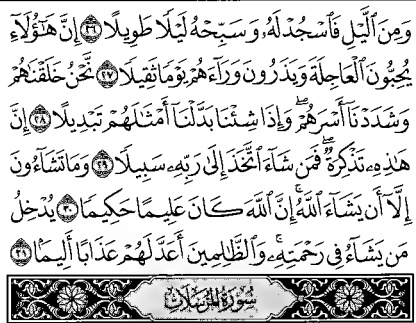 وَمِنَ ٱلَّيْلِ فَٱسْجُدْ لَهُۥ وَسَبِّحْهُ لَيْلًا طَوِيلًا ٢٦ إِنَّ هَٰٓؤُلَآءِ
يُحِبُّونَ ٱلْعَاجِلَةَ وَيَذَرُونَ وَرَآءَهُمْ يَوْمًا ثَقِيلًا ٢٧ نَّحْنُ خَلَقْنَٰهُمْ
وَشَدَدْنَآ أَسْرَهُمْ ۖ وَإِذَا شِئْنَا بَدَّلْنَآ أَمْثَٰلَهُمْ تَبْدِيلًا ٢٨ إِنَّ
هَٰذِهِۦ تَذْكِرَةٌ ۖ فَمَن شَآءَ ٱتَّخَذَ إِلَىٰ رَبِّهِۦ سَبِيلًا ٢٩ وَمَا تَشَآءُونَ
إِلَّآ أَن يَشَآءَ ٱللَّهُ ۚ إِنَّ ٱللَّهَ كَانَ عَلِيمًا حَكِيمًا ٣٠ يُدْخِلُ
مَن يَشَآءُ فِى رَحْمَتِهِۦ ۚ وَٱلظَّٰلِمِينَ أَعَدَّ لَهُمْ عَذَابًا أَلِيمًۢا ٣١
سُورَةُ المُرْسَلَاتِ